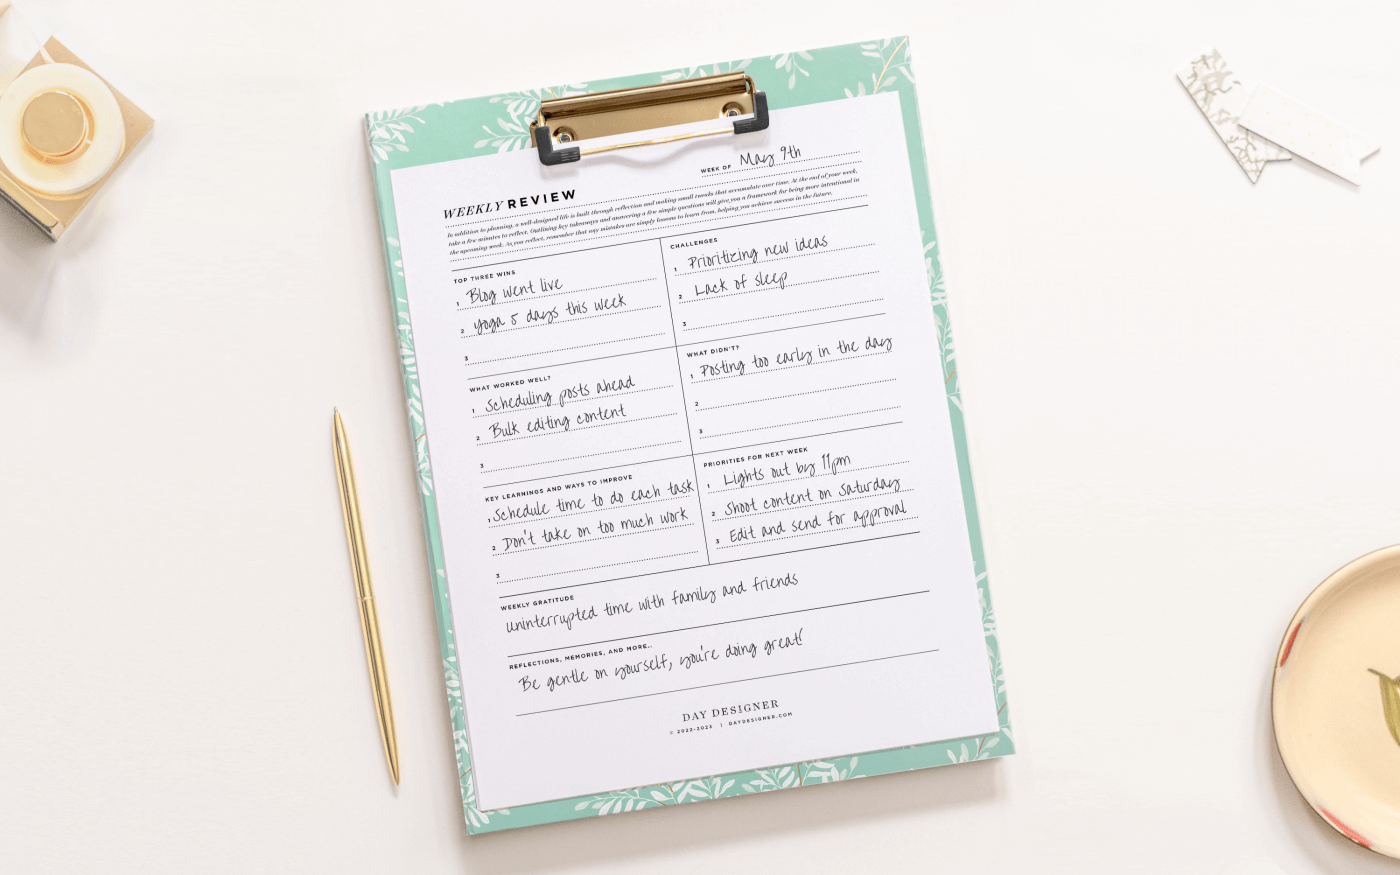 WEEK OF May 9th
WEEKLY REVIEW
In addition to planning, a well-designed life is built through reflection and making small trends that accumulate over time. At the end of your week,
take a few minutes to reflect. Outlining key takeaways and answering a few simple questions will give you a framework for being more intentional in
the upcoming week. As you reflect, remember that any mistakes are simply lessons to learn from, helping you achieve success in the future.
TOP THREE WINS
1 Blog went live
2 yoga 5 days this week
3
CHALLENGES
1 Prioritizing new ideas
2 Lack of sleep
3
WHAT WORKED WELL?
1 Scheduling posts ahead
2 Bulk editing content
3
WHAT DIDN'T?
1 Posting too early in the day
2
3
KEY LEARNINGS AND WAYS TO IMPROVE
1 Schedule time to do each task
2 Don't take on too much work
3
PRIORITIES FOR NEXT WEEK
1 Lights out by 11pm
2 Shoot content on Saturday
3 Edit and send for approval
WEEKLY GRATITUDE
uninterrupted time with family and friends
REFLECTIONS, MEMORIES, AND MORE...
Be gentle on yourself, you're doing great!
DAY DESIGNER
© 2022-2023 | DAYDESIGNER.COM